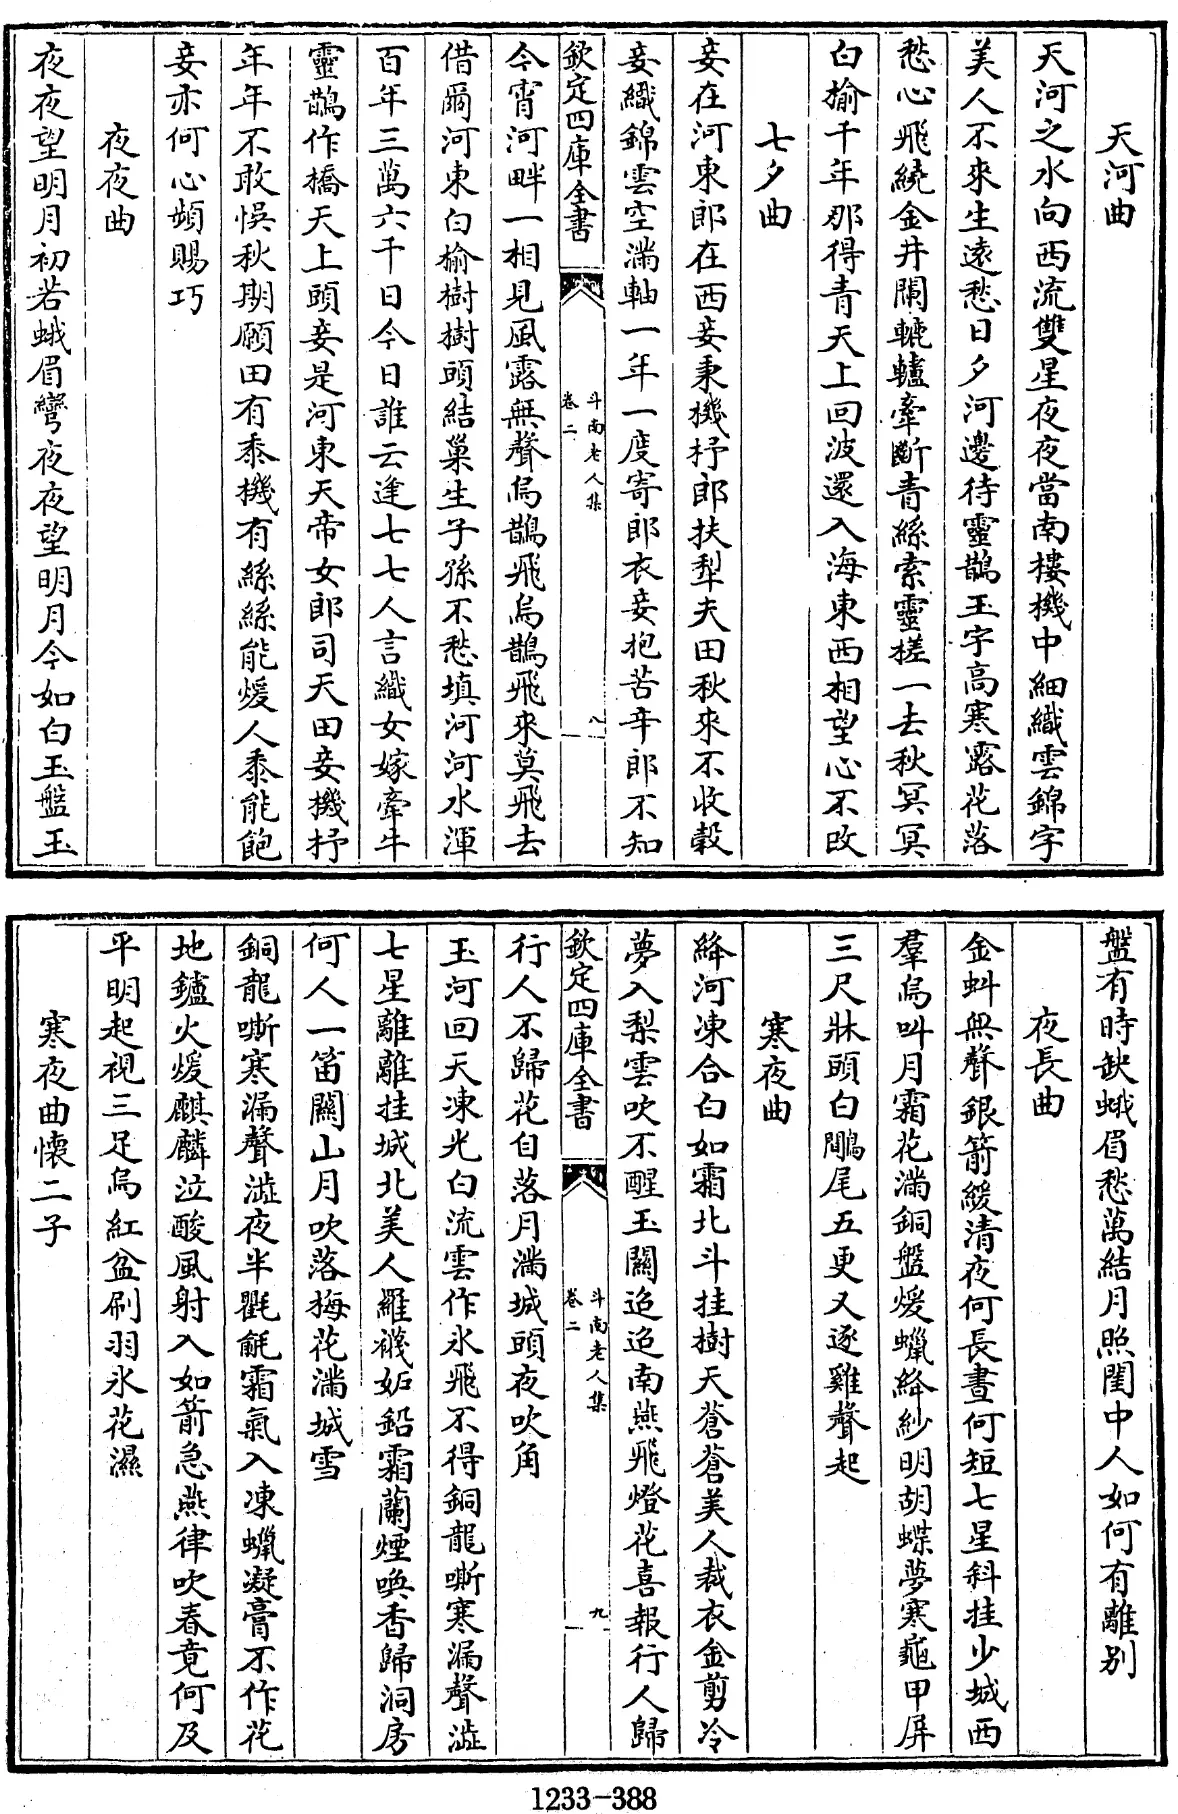 天河曲
天河之水向西流雙星夜夜當南樓機中細織雲錦字
美人不來生遠愁日夕河邊待靈鵲玉宇高寒露花落
愁心飛繞金井闌轆轤牽斷青絲索靈槎一去秋冥冥
白榆千年那得青天上回波還入海東西相望心不改
七夕曲
妾在河東郎在西妾秉機抒郎扶犂夫田秋來不收穀
妾織錦雲空滿軸一年一度寄郎衣妾抱苦辛郎不知
欽定四庫全書
斗南老人集
卷二
八
今宵河畔一相見風露無聲烏鵲飛烏鵲飛來莫飛去
借爾河東白榆樹樹頭結巢生子孫不愁填河河水渾
百年三萬六千日今日誰云逢七七人言織女嫁牽牛
靈鵲作橋天上頭妾是河東天帝女郎司天田妾機抒
年年不敢悞秋期願田有黍機有絲絲能煖人黍能飽
妾亦何心頻賜巧
夜夜曲
夜夜望明月初若蛾眉彎夜夜望明月今如白玉盤玉
盤有時缺蛾眉愁萬結月照閨中人如何有離别
夜長曲
金蚪無聲銀箭緩清夜何長晝何短七星斜挂少城西
羣烏叫月霜花滿銅盤煖蠟絳紗明胡蝶夢寒龜甲屏
三尺牀頭白鵰尾五更又逐雞聲起
寒夜曲
絳河凍合白如霜北斗挂樹天蒼蒼美人裁衣金剪冷
夢入梨雲吹不醒玉關迢迢南燕飛燈花喜報行人歸
欽定四庫全書
斗南老人集
卷二
九
行人不歸花自落月滿城頭夜吹角
玉河回天凍光白流雲作冰飛不得銅龍嘶寒漏聲澁
七星離離挂城北美人羅襪妬鉛霜蘭煙喚香歸洞房
何人一笛關山月吹落梅花滿城雪
銅龍嘶寒漏聲澁夜半氍毹霜氣入凍蠟凝膏不作花
地鑪火煖麒麟泣酸風射入如箭急燕律吹春竟何及
平明起視三足烏紅盆刷羽氷花濕
寒夜曲懷二子
1233-388